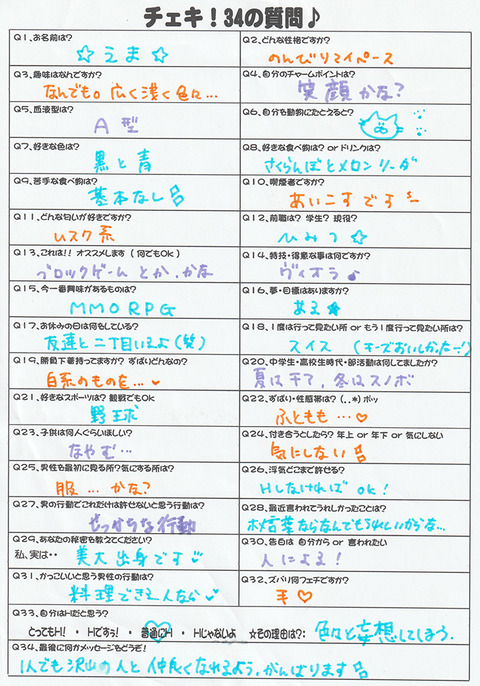 チェキ！34の質問♪
Q1、お名前は？
☆えま☆
Q2、どんな性格ですか？
のんびりマイペース
Q3、趣味はなんですか？
なんでも。広く浅く色々…
Q4、自分のチャームポイントは？
笑顔かな？
Q5、血液型は？
A型
Q6、自分を動物にたとえると？
Q7、好きな色は？
黒と青
Q8、好きな食べ物は？ or ドリンクは？
さくらんぼとメロンソーダ
Q9、苦手な食べ物は？
基本なし
Q10、喫煙者ですか？
あいこすです
Q11、どんな匂いが好きですか？
ムスク系
Q12、前職は？ 学生？ 現役？
ひみつ☆
Q13、これは！！ オススメします （何でもOk）
ブロックゲームとか、かな
Q14、特技・得意な事は何ですか？
ヴィオラ♪
Q15、今一番興味があるものは？
MMORPG
Q16、夢・目標はありますか？
ある★
Q17、お休みの日は何をしている？
友達と二丁目いるよ(笑)
Q18、1度は行って見たい所 or もう1度行って見たい所は？
スイス (チーズおいしかったー!)
Q19、勝負下着持ってますか？ ずばりどんなの？
白系のものを…♥
Q20、中学生・高校生時代・部活動は何してましたか？
夏は干て、冬はスノボ
Q21、好きなスポーツは？ 観戦でもOK
野球
Q22、ずばり・性感帯は？（．．*）ポッ
ふともも…♡
Q23、子供は何人ぐらいほしい？
なやむ…
Q24、付き合うとしたら？ 年上 or 年下 or 気にしない
気にしない
Q25、男性を最初に見る所？気にする所は？
服…かな？
Q26、浮気どこまで許せる？
Hしなければok!
Q27、男の行動でこれだけは許せないと思う行動は？
せっかちな行動
Q28、最近言われてうれしかったことは？
ホメ言葉ならなんでもうれしいかな…
Q29、あなたの秘密を教えてください？
私、実は‥ 美大出身です♥
Q30、告白は 自分から or 言われたい
人による！
Q31、かっこいいと思う男性の行動は？
料理できる人なら♥
Q32、ズバリ何フェチですか？
手♡
Q33、自分はHだと思う？
とってもH！ ・ Hですぅ！ ・ 普通にH ・ Hじゃないよ ☆その理由は？： 色々と妄想してしまう。
Q34、最後に何かメッセージをどうぞ！
1人でも沢山の人と仲良くなれるよう、がんばります